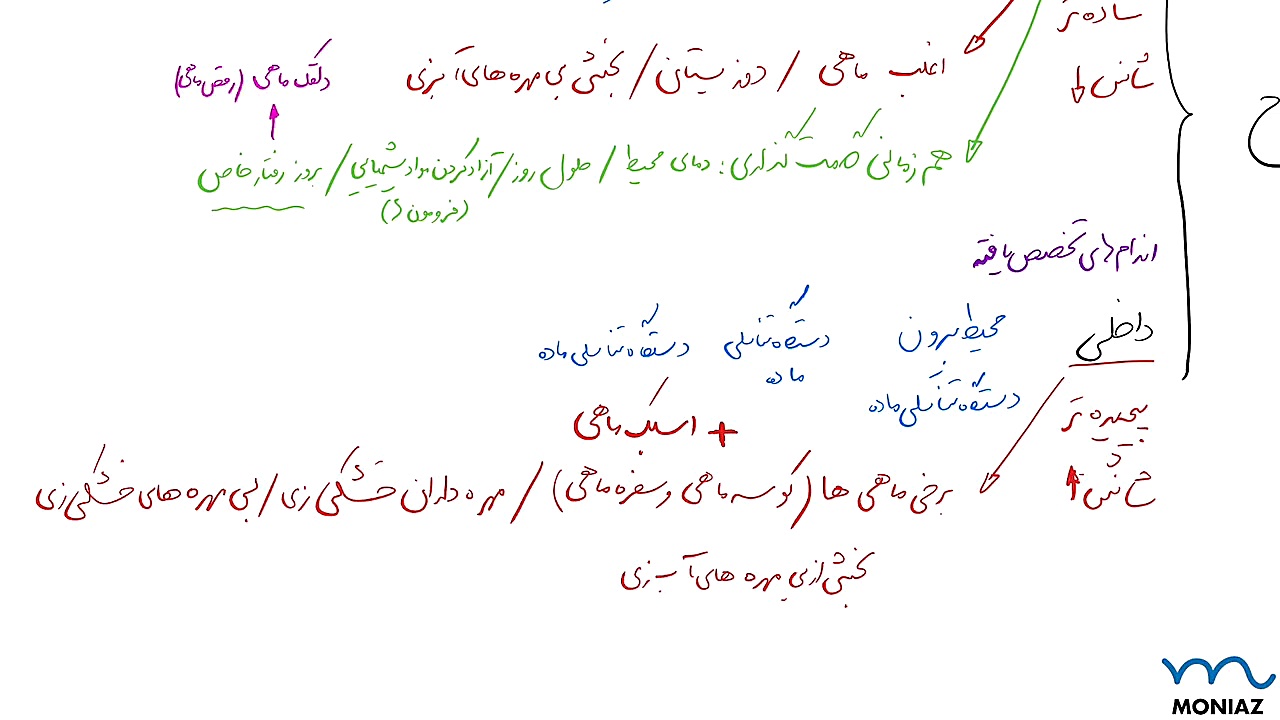 ساده تر
شانس ↓
اغلب ماهی / دوزیستان / بخشی بی مهره های آبزی
دلقک ماهی (رقص ماهی)
هم زمانی گامت گذاری : دمای محیط / طول روز / آزاد کردن مواد شیمیایی / بروز رفتار خاص
(فرومون)
اندام های تخصص یافته
داخلی
محیط بیرون دستگاه تناسلی دستگاه تناسلی ماده
دستگاه تناسلی ماده ماده
پیچیده تر
شانس ↑
+ اسبک ماهی
برخی ماهی ها (کوسه ماهی و سفره ماهی) / مهره داران خشکی زی / بی مهره های خشکی زی
بخشی از بی مهره های آب زی
MONIAZ